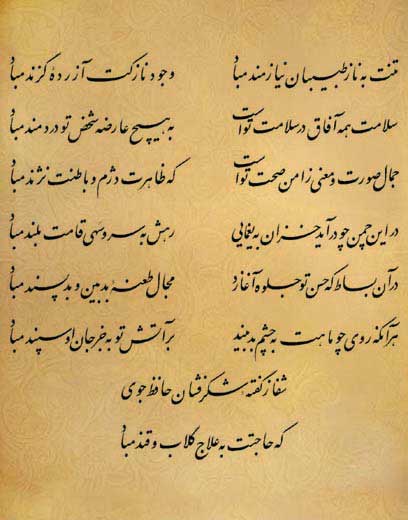 تنت به ناز طبیبان نیازمند مباد وجود نازکت آزرده گزند مباد
سلامت همه آفاق در سلامت تواست به هیچ عارضه شخص تو دردمند مباد
جمال صورت و معنی ز امن صحت تواست که ظاهرت دژم و باطنت نژند مباد
در این چمن چو درآید خزان به یغمایی رهش به سرو سهی قامت بلند مباد
در آن بساط که حسن تو جلوه آغازد مجال طعنه بدبین و بدپسند مباد
هر آنکه روی چو ماهت به چشم بد بیند بر آتش تو به جز جان او سپند مباد
شفا ز گفته شکرفشان حافظ جوی
که حاجتت به علاج گلاب و قند مباد